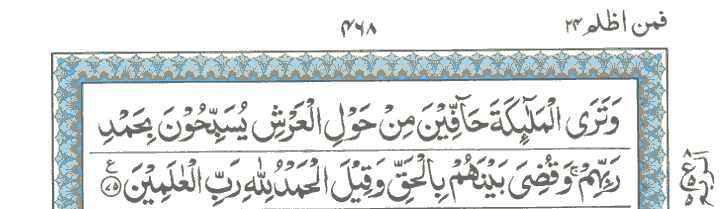 فمن اظلم ۲۴
۴۶۸
وَتَرَى الْمَلٰٓئِكَةَ حَآفِّيْنَ مِنْ حَوْلِ الْعَرْشِ يُسَبِّحُوْنَ بِحَمْدِ
رَبِّهِمْ ۚ وَقُضِيَ بَيْنَهُمْ بِالْحَقِّ وَقِيْلَ الْحَمْدُ لِلّٰهِ رَبِّ الْعٰلَمِيْنَ ۧ ﴿۷۵﴾